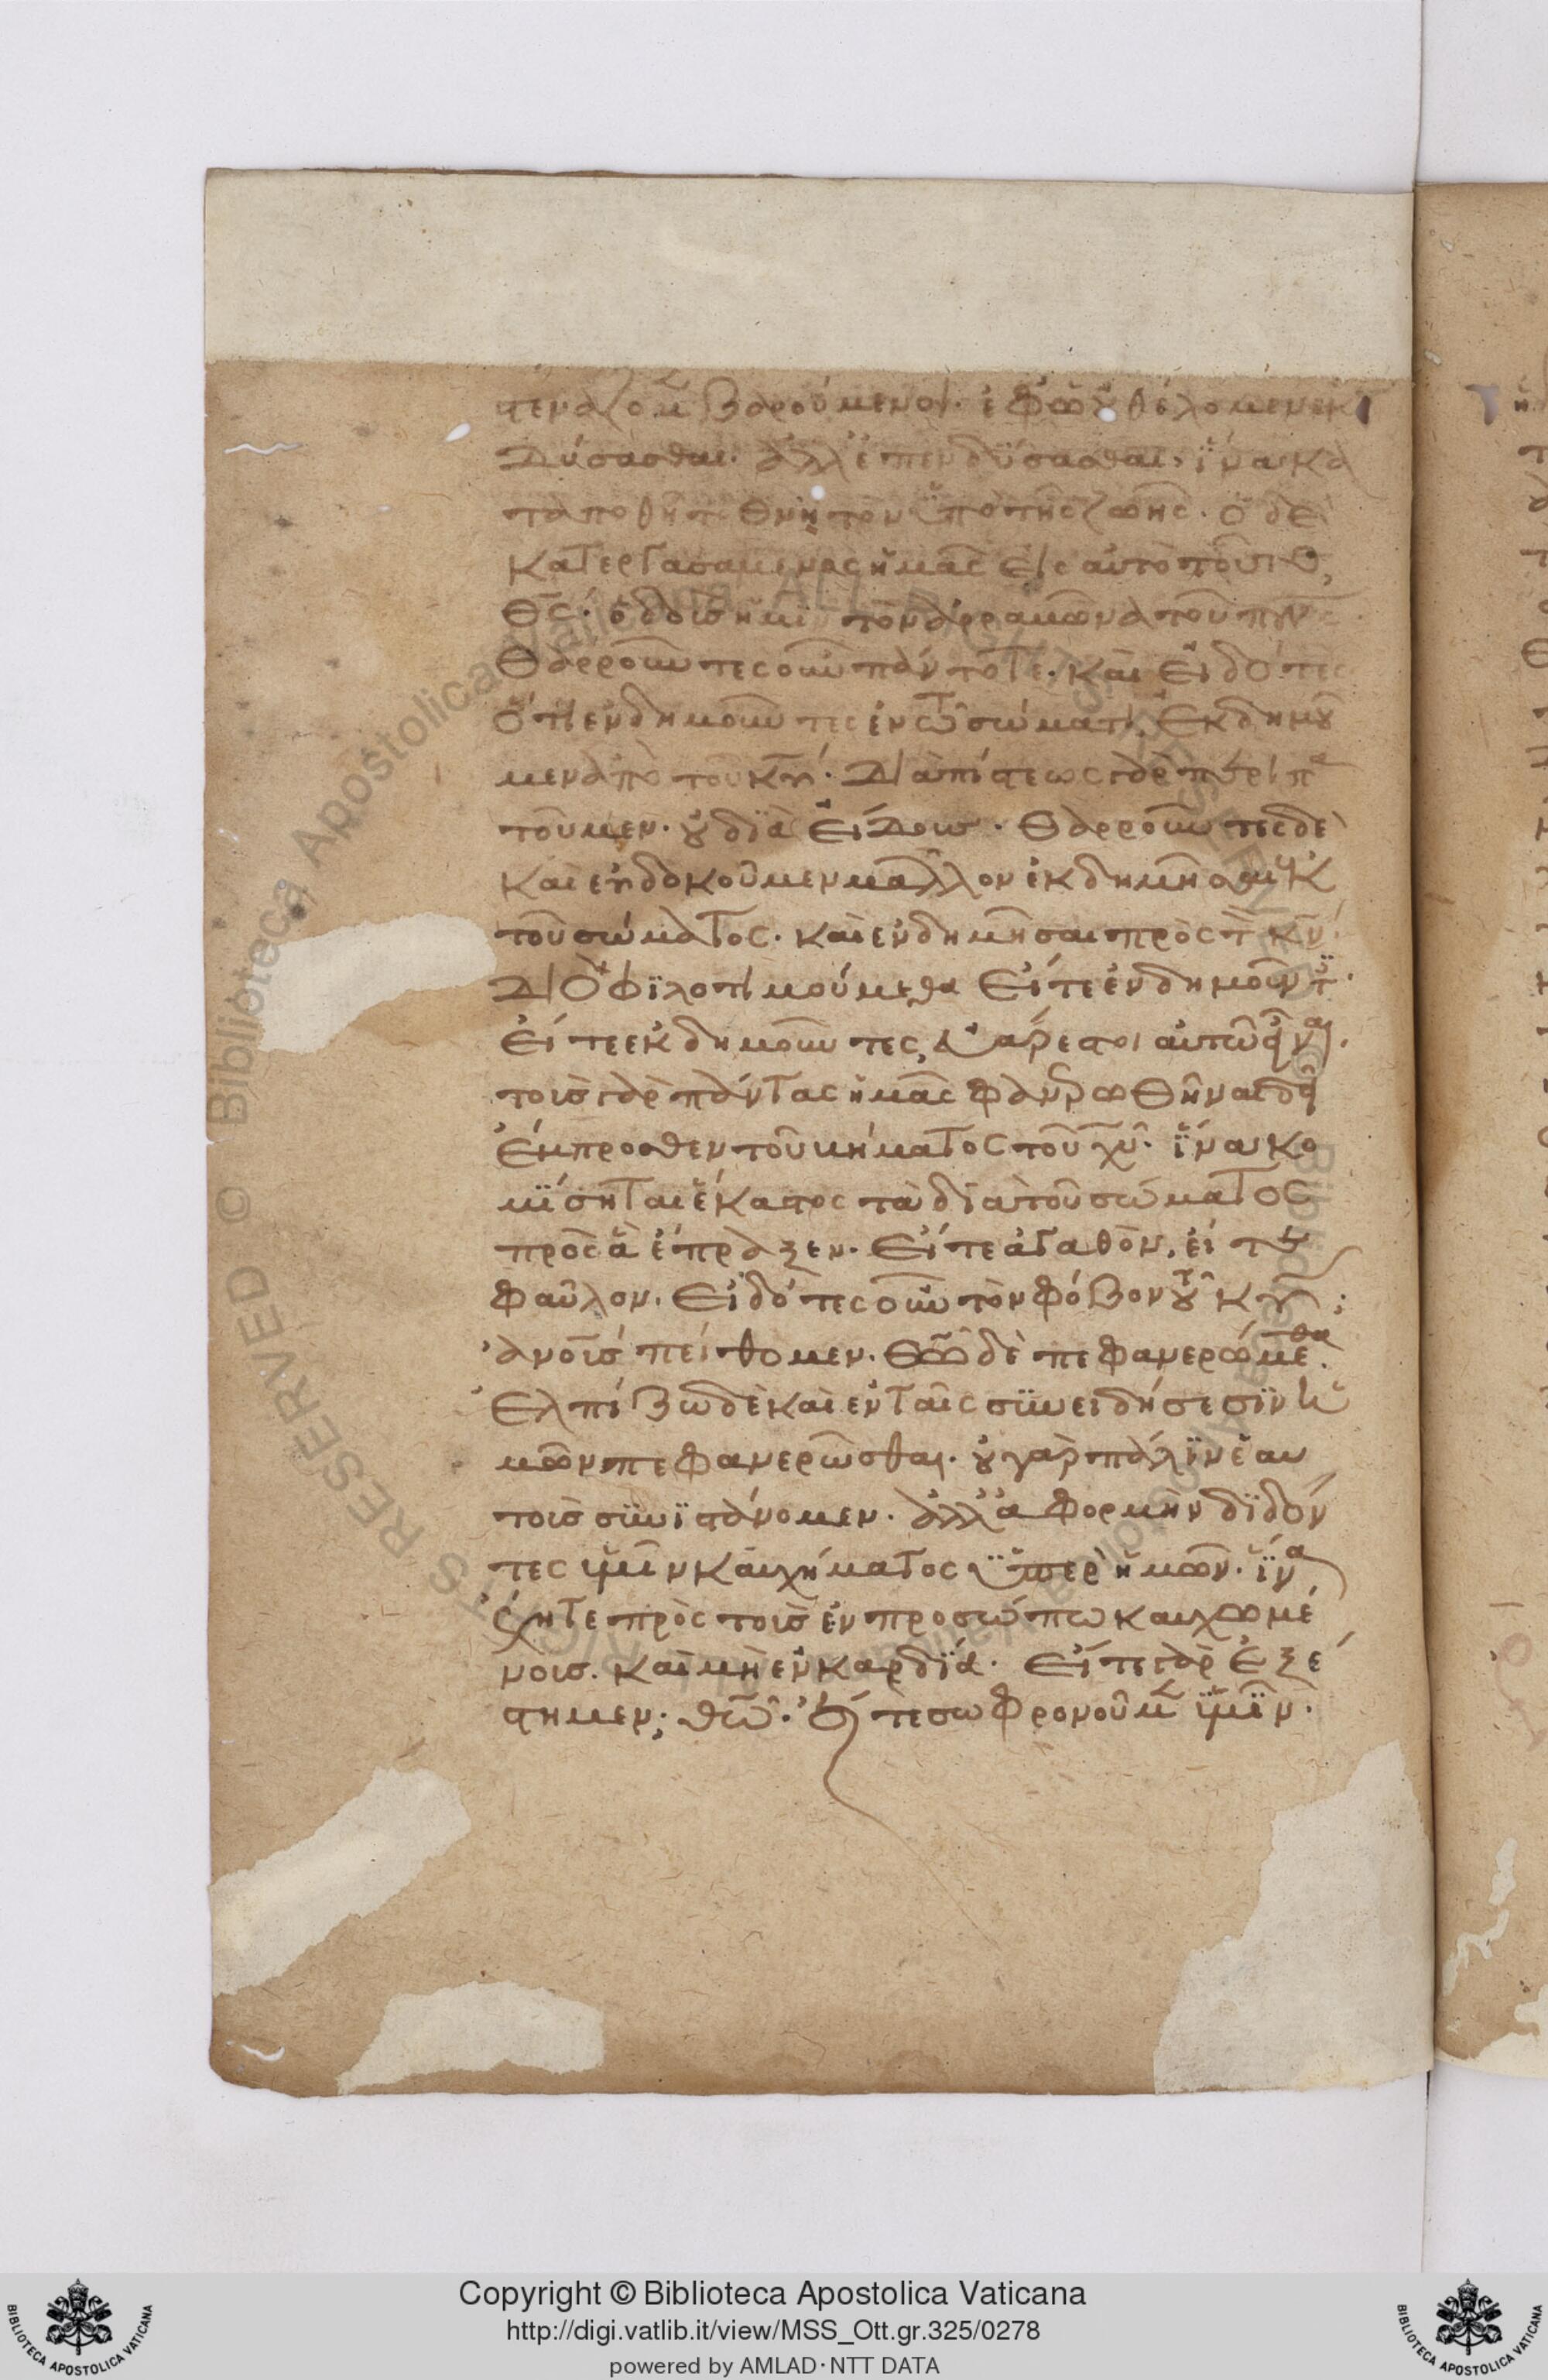 στενάζομ βαρούμενοι· ἐφῶ ȣ θέλομεν ἐκ
δύσασθαι· ἀλλ ἐπενδύσασθαι, ἵνα κα
ταποθῆ τ θνητὸν ὑπὸ τῆς ζωῆς· ὁ δὲ
κατεργασάμενος ἡμᾶς εἰς αὐτὸ τοῦτο,
θς· ὁ δοὺσ ἡμῖν τὸν ἀρραμῶνα τοῦ πνς
Θαρροῦντες οὖν πάντοτε· καὶ εἰδότες
ὅτι ἐνδημοῦντες ἐν τῶ σώματι, ἐκδημȣ
μεν ἀπὸ τοῦ κυ· Διὰ πίστεως γὰρ περιπα
τοῦμεν· ȣ διὰ εἴδουσ· Θαρροῦντες δὲ
καὶ εὐδοκοῦμεν μᾶλλον ἐκδημῆσαι ἐκ
τοῦ σώματος· καὶ ἐνδημῆσαι πρὸς τ κν·
Διὸ φιλοτιμούμεθα εἴτε ἐνδημοῦντ·
εἴτε ἐκδημοῦντες, εὐάρεστοι αὐτῶ εἶναι·
τοὺσ γὰρ πάντας ἡμᾶς φανρωθῆναι δεῖ
ἔμπροσθεν τοῦ βήματος τοῦ χυ· ἵνα κο
μίσηται ἕκαστος τὰ διὰ τοῦ σώματος
πρὸς ἃ ἔπραξεν· εἴτε ἀγαθὸν, εἴτε
φαῦλον· Εἰδότες οὖν τὸν φόβον τȣ κυ;
ἀνοῖσ πείθομεν· θῶ δὲ πεφανερώμεθα·
Ἐλπίζω δὲ καὶ ἐν ταῖς συνειδήσεσιν ὑ
μῶν πεφανερῶσθαι· ȣ γὰρ πάλιν ἑαυ
τοὺσ συνιστάνομεν· ἀλλ ἀφορμὴν διδόν
τες ὑμῖν καυχήματος ὑπερ ἡμῶν· ἵνα
ἔχητε πρὸς τοὺσ ἐν προσώπω καυχωμέ
νουσ· καὶ μὴ ἐν καρδία· Εἴτε γὰρ ἐξέ
στημεν; θῶ· εἴτε σωφρονοῦμ ὑμῖν·
Copyright © Biblioteca Apostolica Vaticana
http://digi.vatlib.it/view/MSS_Ott.gr.325/0278
powered by AMLAD·NTT DATA